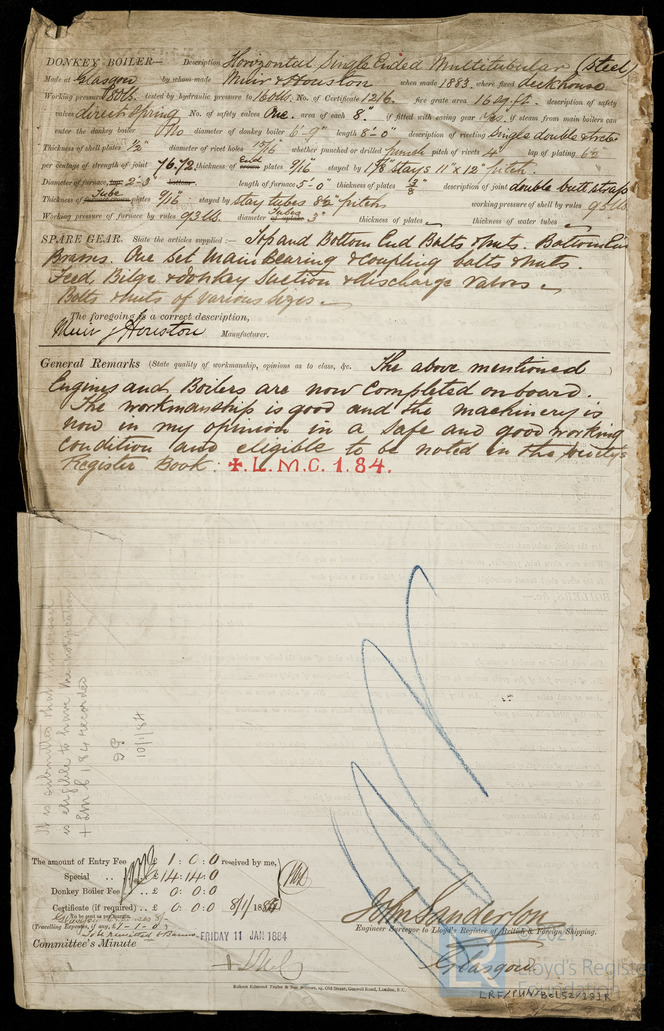 DONKEY BOILER— Description Horizontal Single Ended Multitubular (Steel)
Made at Glasgow by whom made Muir & Houston when made 1883. where fixed deck house
Working pressure 80lbs. tested by hydraulic pressure to 160lbs. No. of Certificate 1216. fire grate area 16 sq. ft. description of safety
valves direct Spring No. of safety valves One. area of each 8." if fitted with easing gear yes. if steam from main boilers can
enter the donkey boiler No diameter of donkey boiler 6'-9" length 8'-0" description of riveting Single double &
Thickness of shell plates 1/2" diameter of rivet holes 15/16" whether punched or drilled punch pitch of rivets 4" lap of plating
per centage of strength of joint 76.72. thickness of End plates 9/16" stayed by 1 7/8" stays 11" x 12" pitch.
Diameter of furnace, top 2'-3" bottom length of furnace 5'-0" thickness of plates 3/8" description of joint double butt straps
Thickness of Tube plates 9/16" stayed by stay tubes 8 1/2" pitch working pressure of shell by rules 95 lbs
Working pressure of furnace by rules 93 lbs. diameter of Tubes 3" thickness of plates — thickness of water tubes —
SPARE GEAR. State the articles supplied:— Top and Bottom End Bolts & nuts. Bottom End
Brasses. One Set Main Bearing & Coupling bolts & nuts.
Feed, Bilge & donkey Suction & discharge valves.
Bolts & nuts of various sizes.
The foregoing is a correct description,
Muir & Houston Manufacturer.
General Remarks (State quality of workmanship, opinions as to class, &c. The above mentioned
Engines and Boilers are now completed onboard.
The workmanship is good and the machinery is
now in my opinion in a safe and good working
condition and eligible to be noted in the Society's
Register Book. ✠.L.M.C. 1.84.
It is submitted that this vessel
is eligible to have the notification
+ LMC 1.84 recorded
10/1/84
The amount of Entry Fee £ 1 : 0 : 0 received by me,
Special .. £ 14 : 14 : 0
Donkey Boiler Fee .. £ 0 : 0 : 0
Certificate (if required) .. £ 0 : 0 : 0 8/1/ 1884
To be sent as per margin.
(Travelling Expenses, if any, £1-1-0)
Committee's Minute
FRIDAY 11 JAN 1884
John Sanderson
Engineer Surveyor to Lloyd's Register of British & Foreign Shipping.
Glasgow
Robson Edmund Taylor & Son Printers, 19, Old Street, Goswell Road, London, E.C.
© 2021
LR
Lloyd's Register
Foundation
LRF/PUN/BEL52/191R